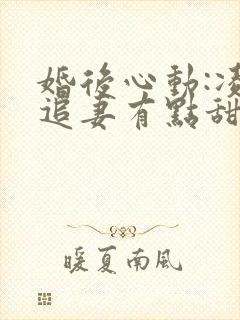 婚後心動:凌
追妻有點甜
暖夏南風